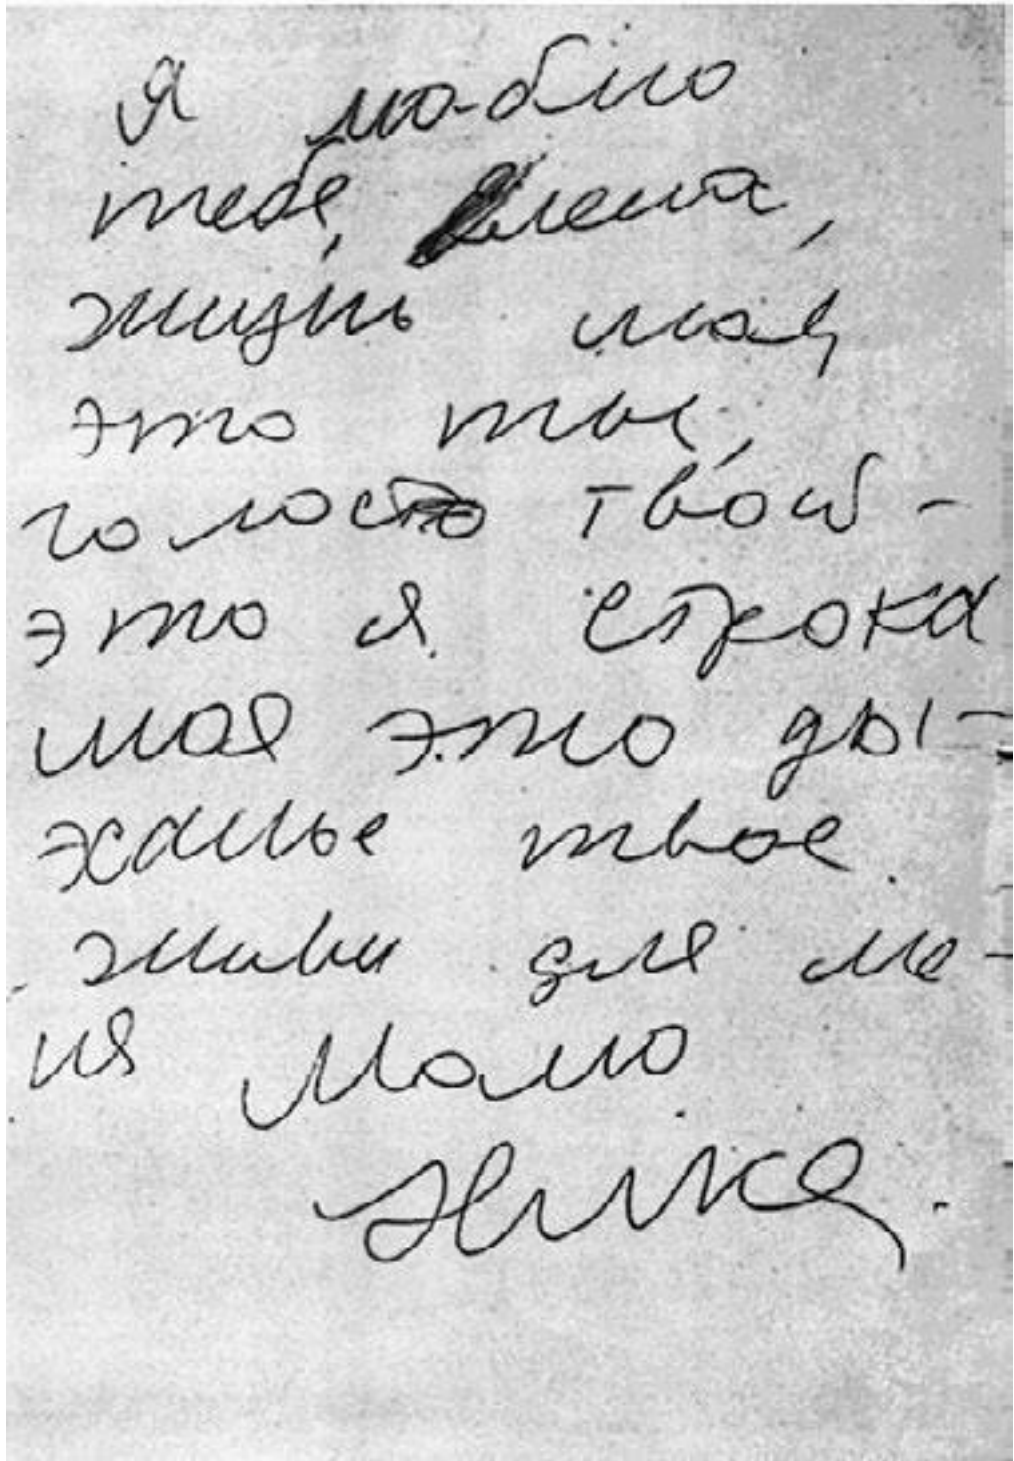 я люблю
тебя, Алена,
жизнь моя
это ты,
голос твой -
это я строка
моя это ды-
ханье твое.
живи для ме-
ня Мамо
Ника.